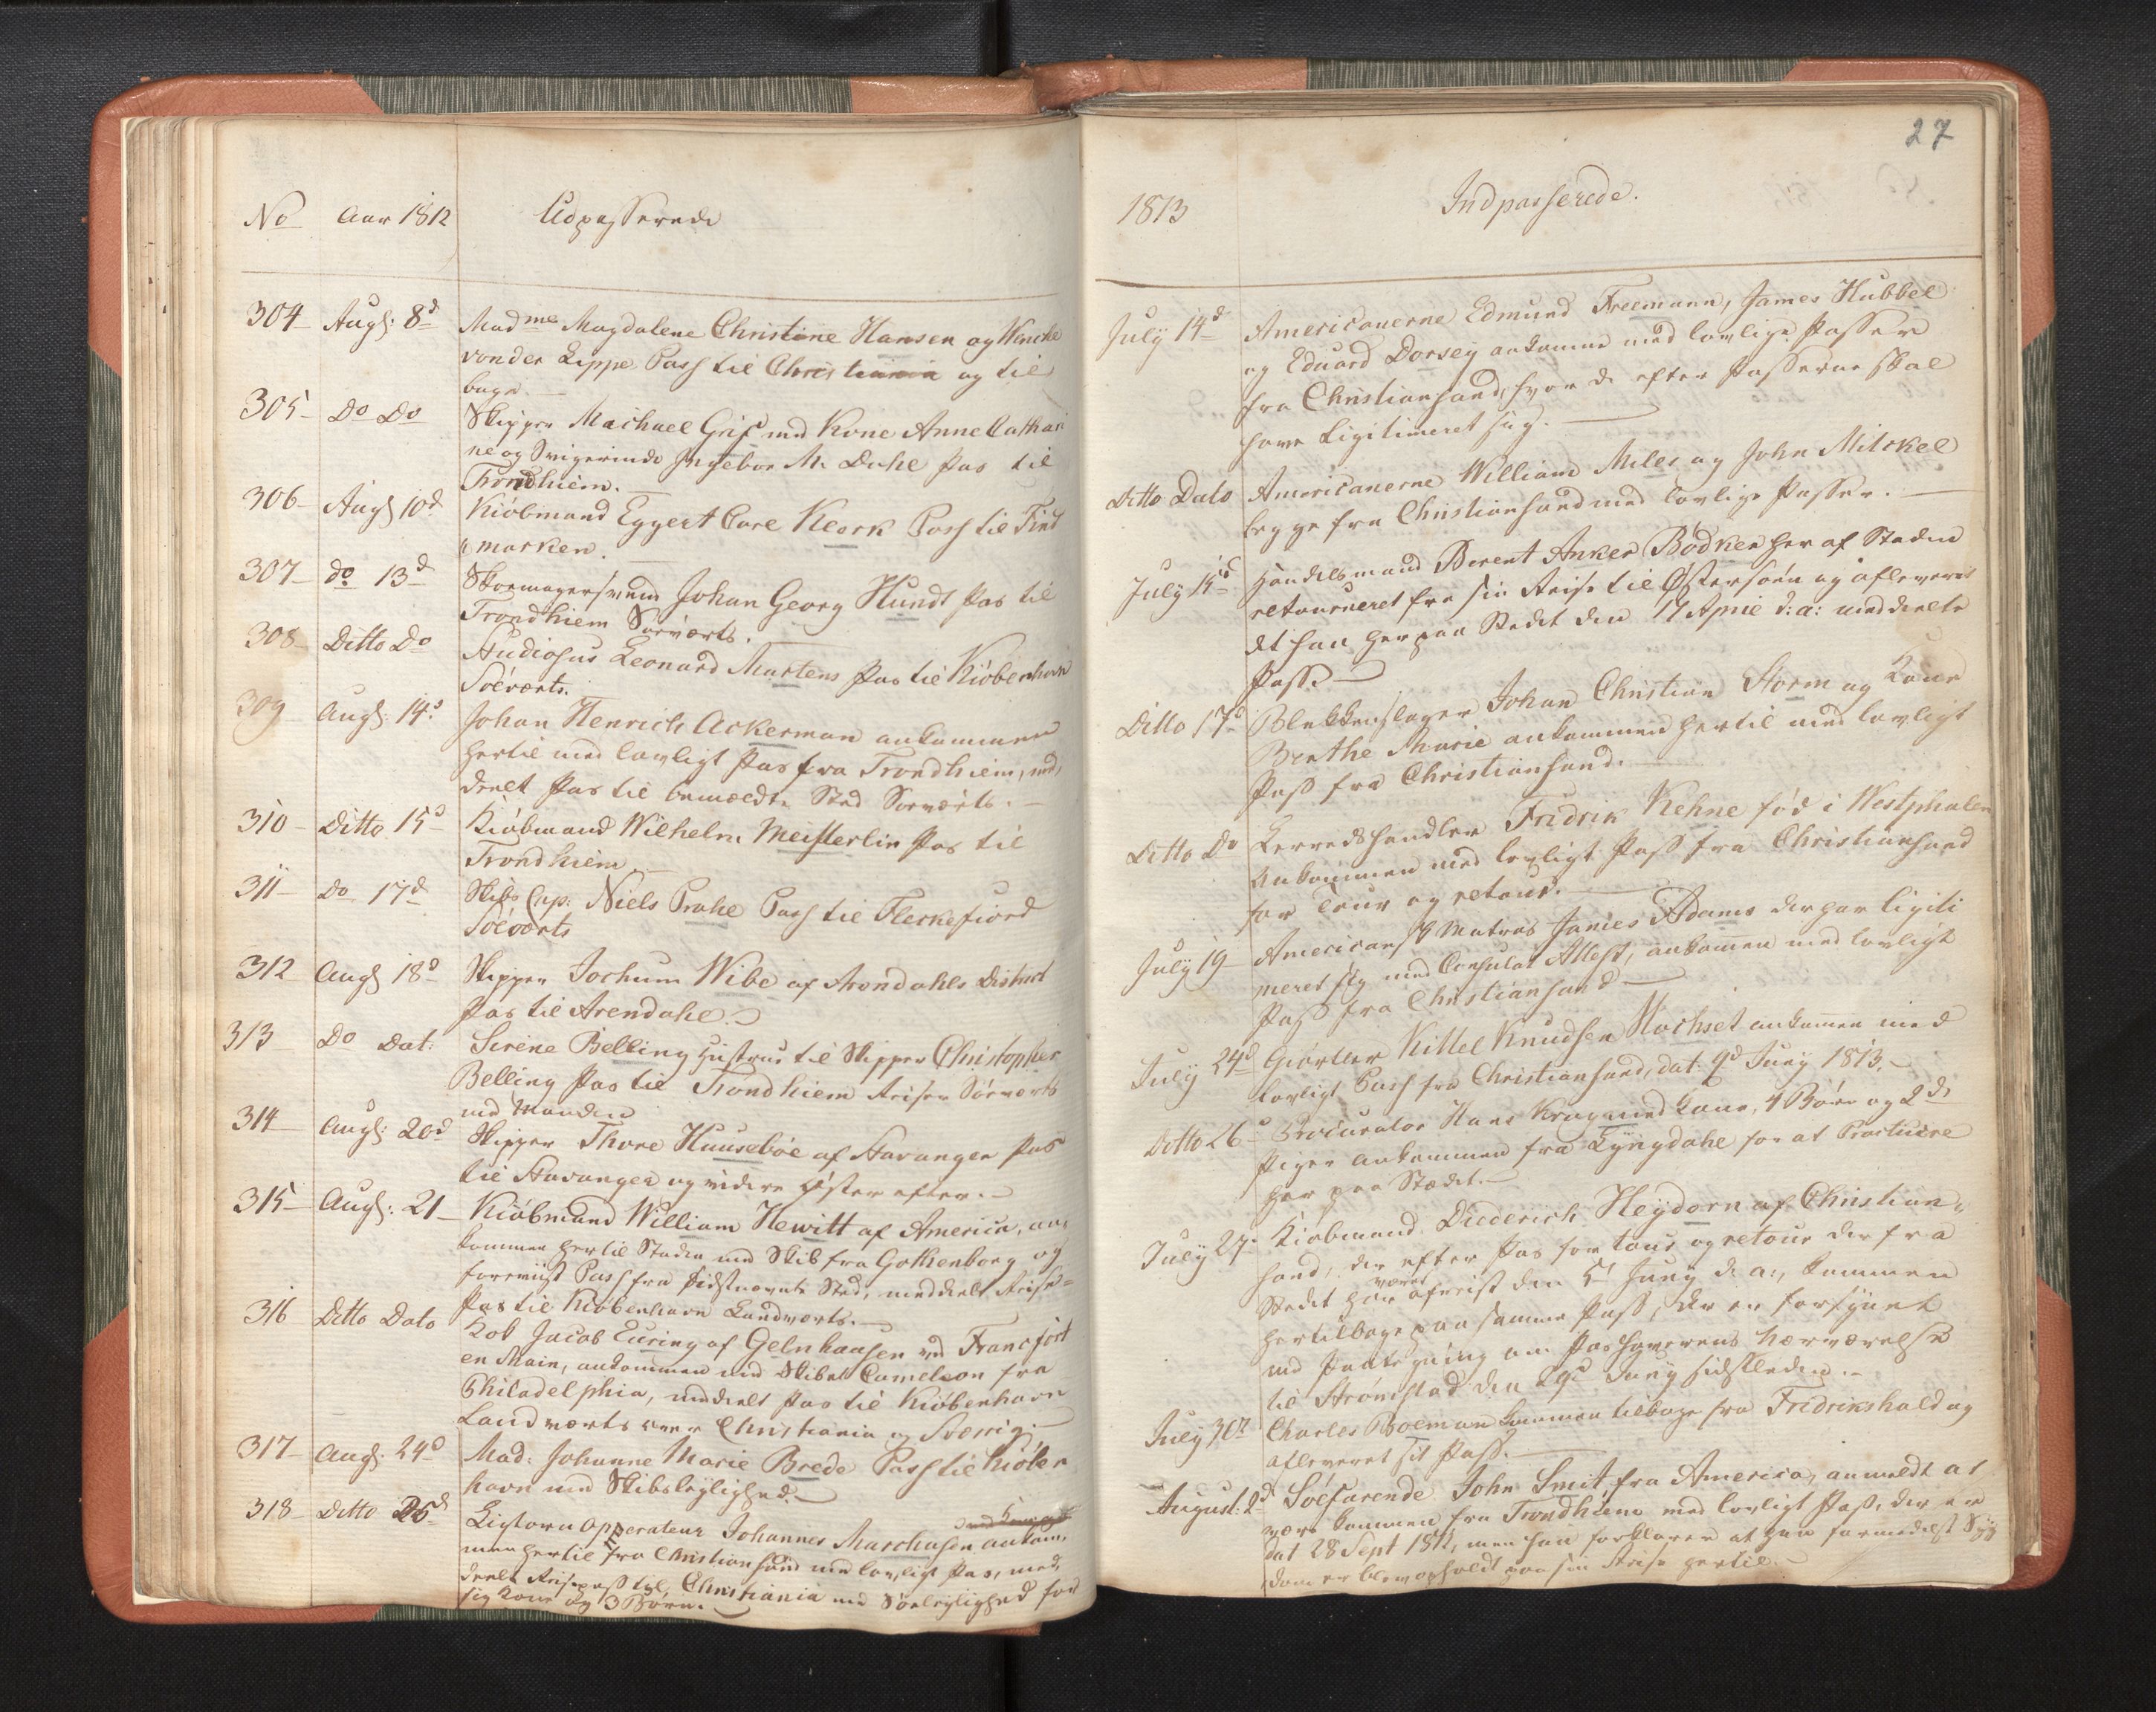 No Aar 1812 Udpasserede
304 Augs: 8d Madme Magdalene Christine Hansen og Wencke
von der Lippe Pass til Christiania og til
bage.
305 Do Do Skipper Machael Grif med Kone Anne Cathari
ne og Svigerinde Ingebor M. Dahl Pas til
Trondhiem.
306 Augs 10d Kiöbmand Eggert Carl Klerk Pass til Find
marken.
307 do 13d Skomagersvend Johan Georg Hundt Pas til
Trondhiem Söeværts.
308 Ditto Do Studiosus Leonard Martens Pas til Kiöbenhavn
Söeværts.
309 Augs: 14d Johan Henrich Ackerman ankommen
hertil med lovligt Pas fra Trondhiem, med
deelt Pas til bemeldte Sted Söeværts.
310 Ditto 15d Kiöbmand Wilhelm Meisterlin Pas til
Trondhiem
311 Do 17d Skibs Cap: Niels Prahl Pass til Fleckefiord
Söeværts
312 Augs 18d Skipper Jochum Wibe af Arendahls District
Pas til Arendahl.
313 Do Dat: Sirine Belling Hustrue til Skipper Christopher
Belling Pas til Trondhiem Reiser Söeværts
med Manden
314 Augs: 20d Skipper Thore Hauseböe af Stavanger Pas
til Stavanger og videre Öster efter.
315 Augs: 21 Kiöbmand William Hewitt af America, an
kommen hertil Staden med Skib fra Gothenborg og
foreviist Pass fra sidstnævnte Sted, meddeelt Reise=
Pas til Kiöbenhavn Landværts.
316 Ditto Dato Kob Jacob Euring af Gelnhausen ved Francfort
en Main, ankommen med Skibet Cameleon fra
Philadelphia, meddeelt Pas til Kiöbenhavn
Landværts over Christiania og Sverrig
317 Augs. 24d Mad: Johanne Marie Brede Pass til Kiöben
havn med Skibsleylighed.
318 Ditto 25d Ligtorn Opperateur Johannes Marchusen ankom
men hertil fra Christiansand med lovligt Pas, med
deelt Reisepass til Christiania med Söeleylighed for
sig Kone og 3 Börn.
27
1813 Indpasserede.
July 14d Americanerne Edmund Freemann, James Hubbel
og Eduard Dorsey ankomne med lovlige Passer
fra Christiansand, hvor de efter Passerne skal
have Ligitimeret sig.
Ditto Dato Americanerne William Miles og John Mitckel
begge fra Christiansand med lovlige Passer.
July 15d Handelsmand Berent Anker Bödker her af Staden
retourneret fra sin Reise til Östersöen og afleveret
det han her paa Stedet den 17 April d: a: meddeelte
Pass.
Ditto 17d Blekkenslager Johan Christian Storm og Kone
Berthe Marie ankommen hertil med lovligt
Pass fra Christiansand.
Ditto Do Lerredshandler Fridrik Kehne fød i Westphalen
ankommen med lovligt Pass fra Christiansand
for Tour og retour.
July 19 Americansk Matros James Adams der har ligiti
meret sig med Consulat Attest, ankommen med lovligt
Pass fra Christiansand
July 24d Giörtler Kittel Knudsen Hochset ankommen med
lovligt Pass fra Christiansand, dat: 9d Juny 1813.
Ditto 26d Procurator Hans Krag med Kone, 4 Börn og 2de
Piger ankommen fra Lyngdahl for at Practisere
her paa Stædet.
July 27 Kiöbmand Diederich Heydorn af Christian
sand, der efter Pas for tour og retour der fra
Stedet har været afreist den 5t Juny d. a:, kommen
hertilbage paa samme Pass, der er forsynet
med Paategning om Pashaverens Nærværelse
til Strömstad den 29d Juny sidstleden.
July 30t Charles Boeman kommen tilbage fra Fridrikshald og
afleveret sit Pass.
August: 2d Söefarende John Smit, fra America, anmeldt at
være kommen fra Trondhiem med lovligt Pass, der er
dat 28 Sept 1812, men han forklarer at han formedelst Syg
dom er blev opholdt paa sin Reise hertil.